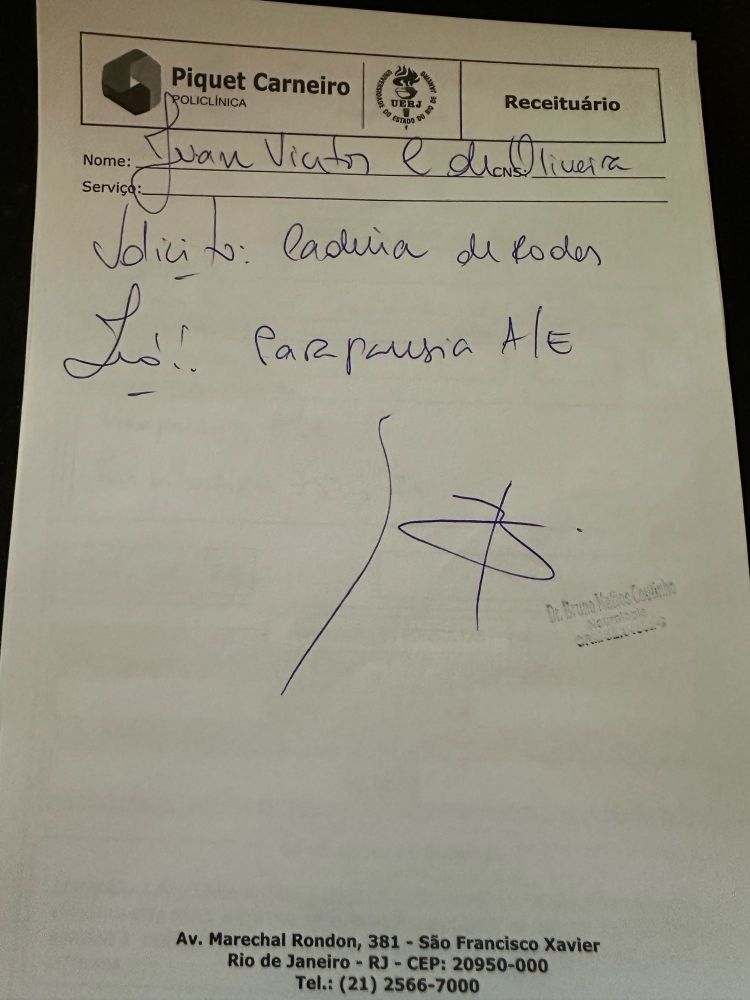 Piquet Carneiro
POLICLÍNICA
UERJ
UNIVERSIDADE DO ESTADO DO RIO DE JANEIRO
Receituário
Nome: Juan Victor C de Oliveira
CNS:
Serviço:
Solicito: Cadeira de Rodas
Paraparesia A/E
Dr. Bruno Mattos Coutinho
Neurologia
Av. Marechal Rondon, 381 - São Francisco Xavier
Rio de Janeiro - RJ - CEP: 20950-000
Tel.: (21) 2566-7000